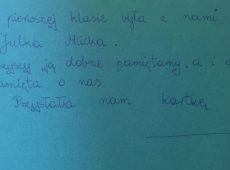 pierwszej klasie była z nami
Julka Micka.
ją dobrze pamiętamy, a i
o nas.
Przysłała nam kartkę